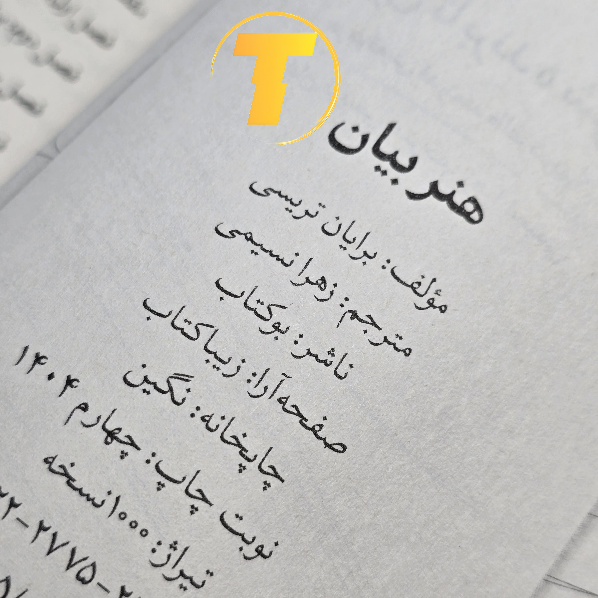 T
هنر بیان
مؤلف: برایان تریسی
مترجم: زهرا نسیمی
ناشر: بوکتاب
صفحه‌آرا: زیبا کتاب
چاپخانه: نگین
نوبت چاپ: چهارم ۱۴۰۴
تیراژ: ۱۰۰۰ نسخه